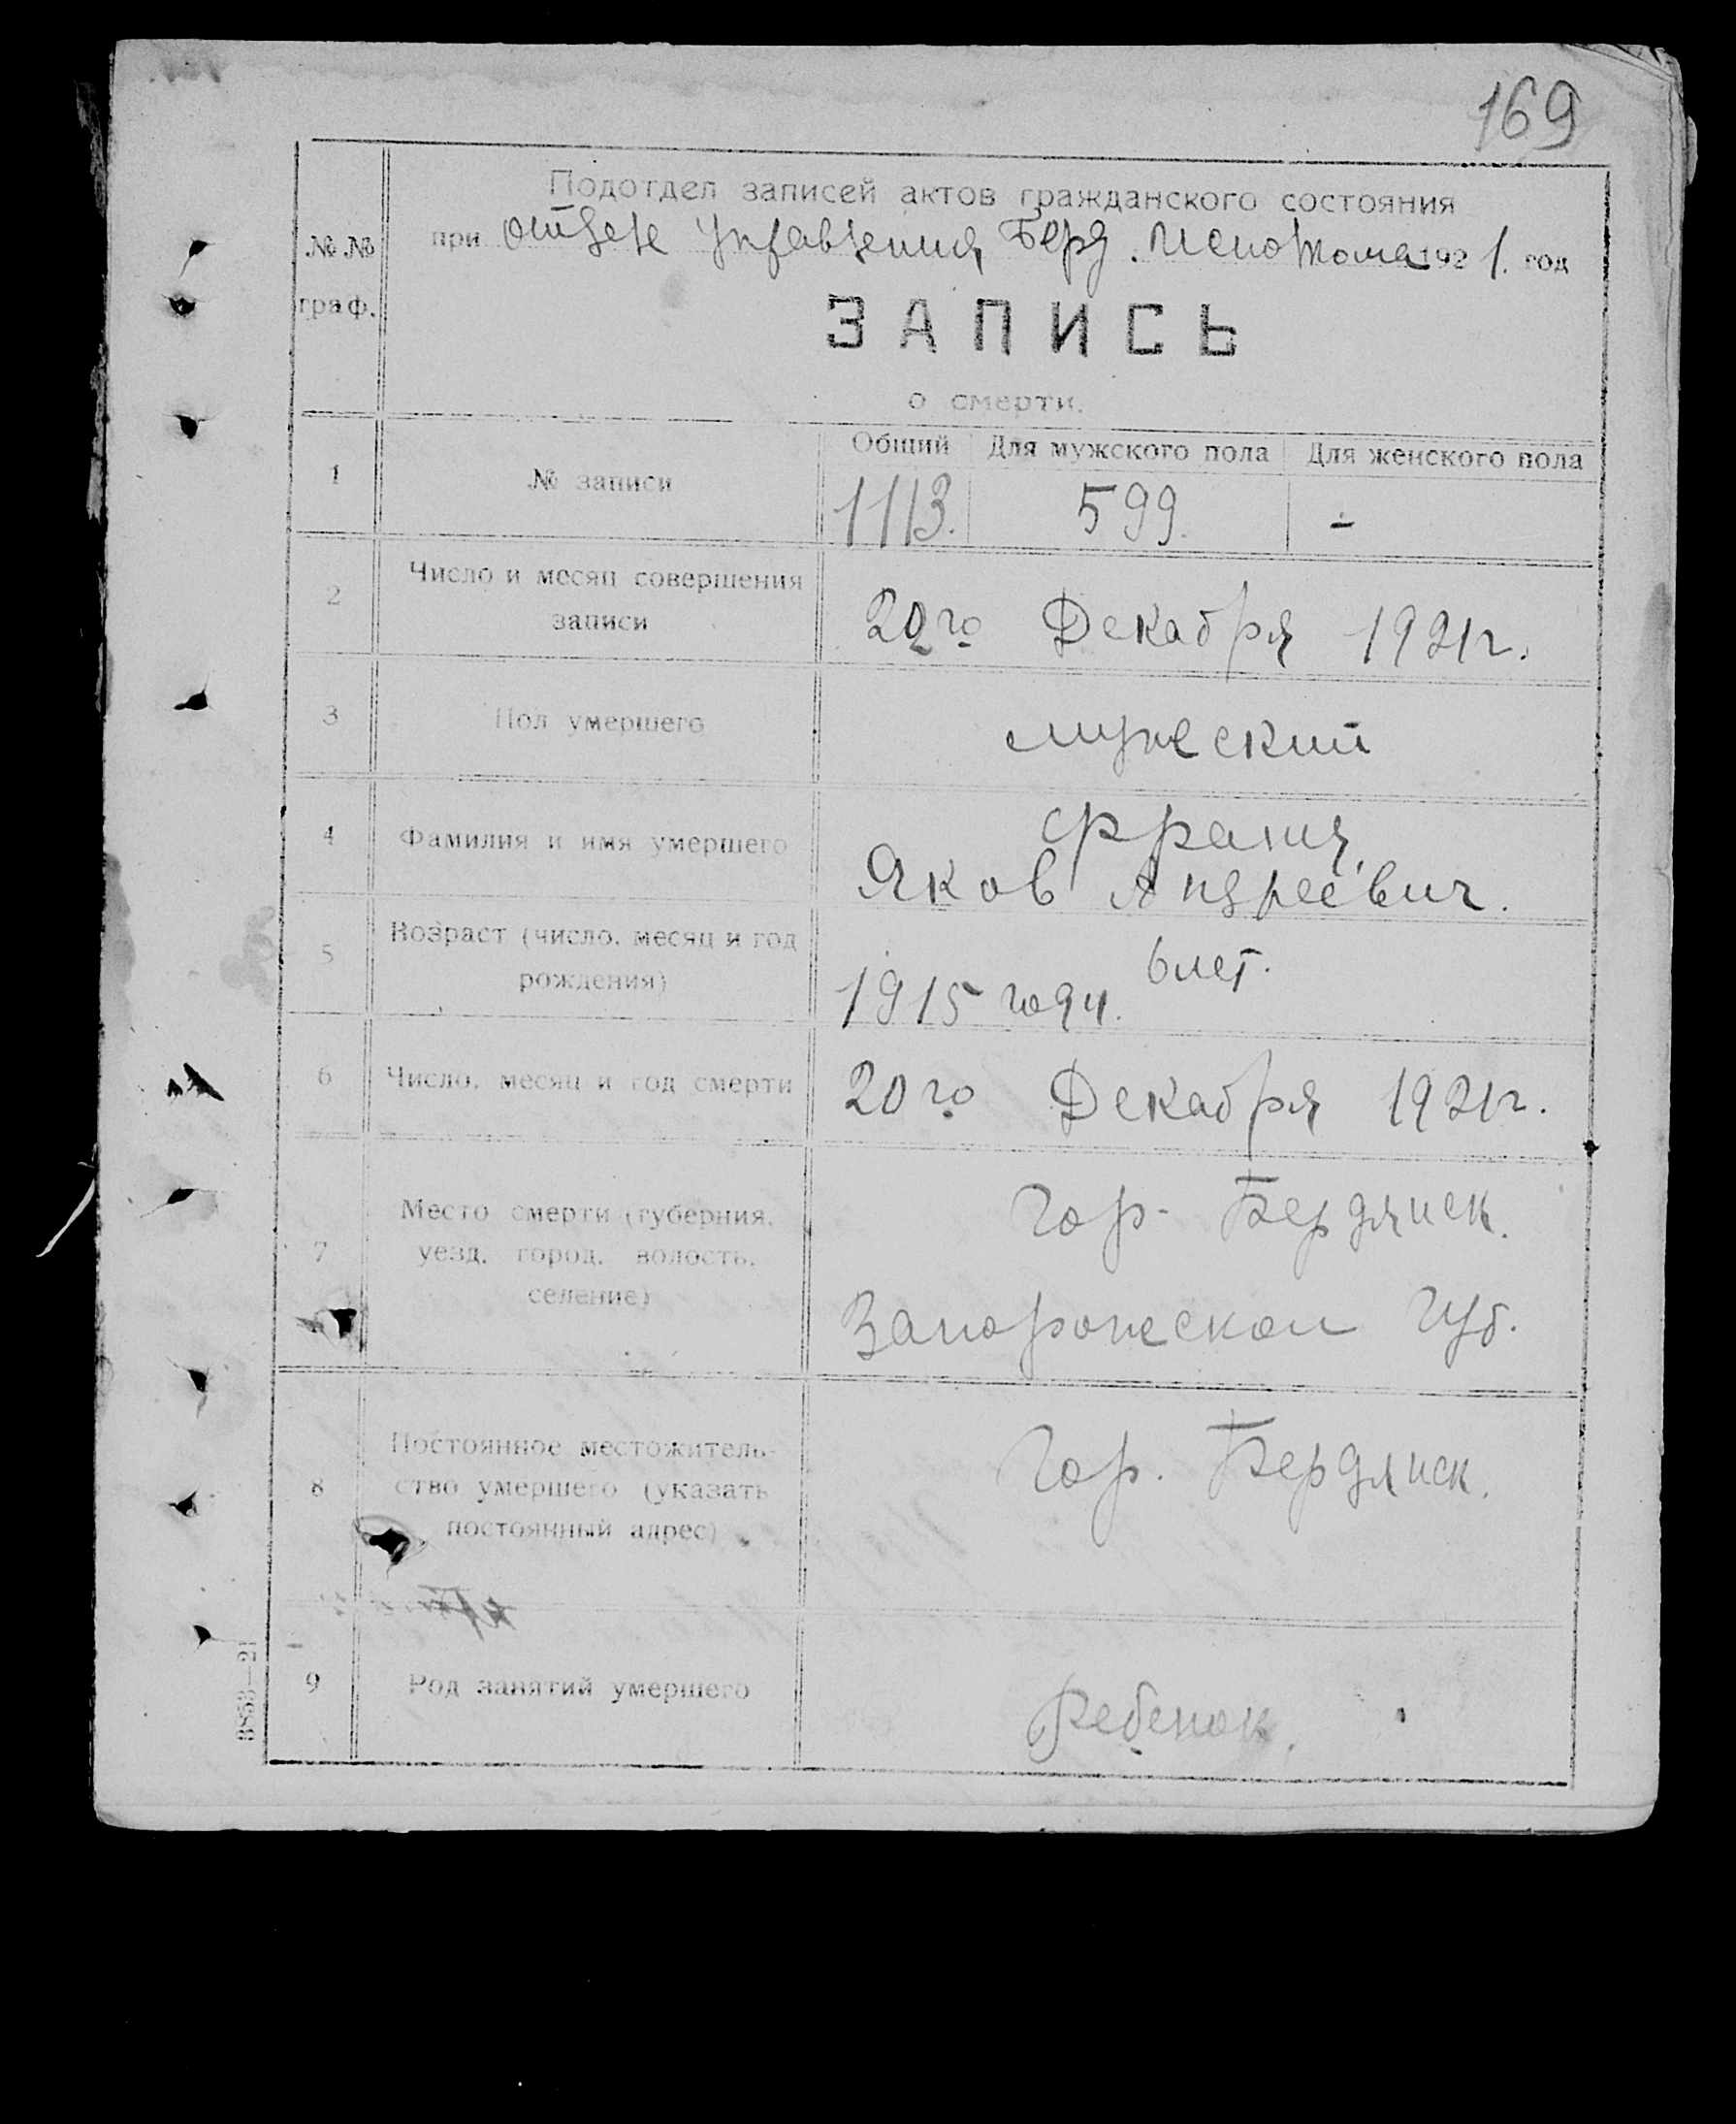 169
Подотдел записей актов гражданского состояния
№ № граф.
при отделе Управления Берд. Исполкома 1921. год
ЗАПИСЬ
о смерти.
Общий Для мужского пола Для женского пола
1 № записи 1113. 599. -
2 Число и месяц совершения
записи
20го Декабря 1921г.
3 Пол умершего мужеский
4 Фамилия и имя умершего Франц
Яков Андреевич.
5 Возраст (число, месяц и год
рождения)
6 лет.
1915 году.
6 Число, месяц и год смерти 20го Декабря 1921г.
7 Место смерти (губерния,
уезд, город, волость,
селение)
Гор. Бердянск.
Запорожской Губ.
8 Постоянное местожитель-
ство умершего (указать
постоянный адрес)
Гор. Бердянск.
9 Род занятий умершего Ребенок.
3853—21